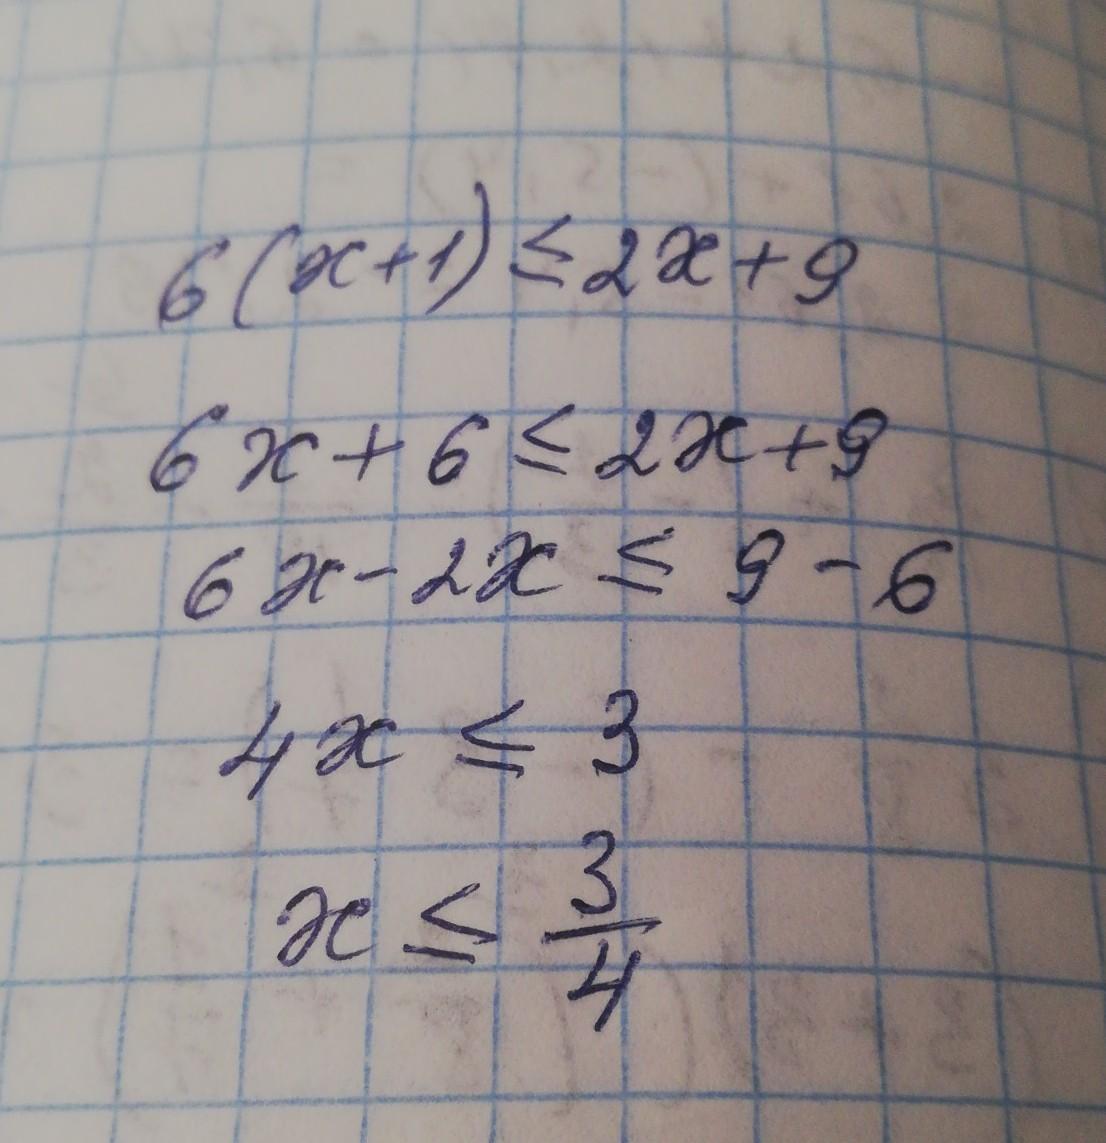 6(x+1) ≤ 2x+9
6x+6 ≤ 2x+9
6x-2x ≤ 9-6
4x ≤ 3
x ≤ 3/4